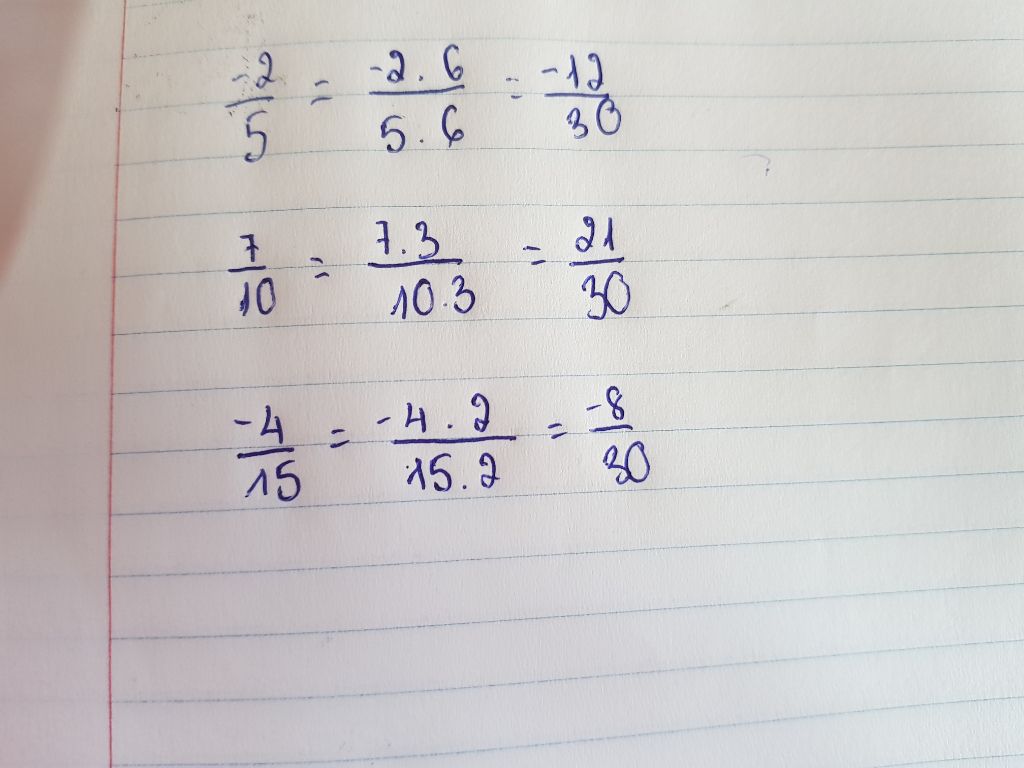 -2/5 = -2.6/5.6 = -12/30
7/10 = 7.3/10.3 = 21/30
-4/15 = -4.2/15.2 = -8/30